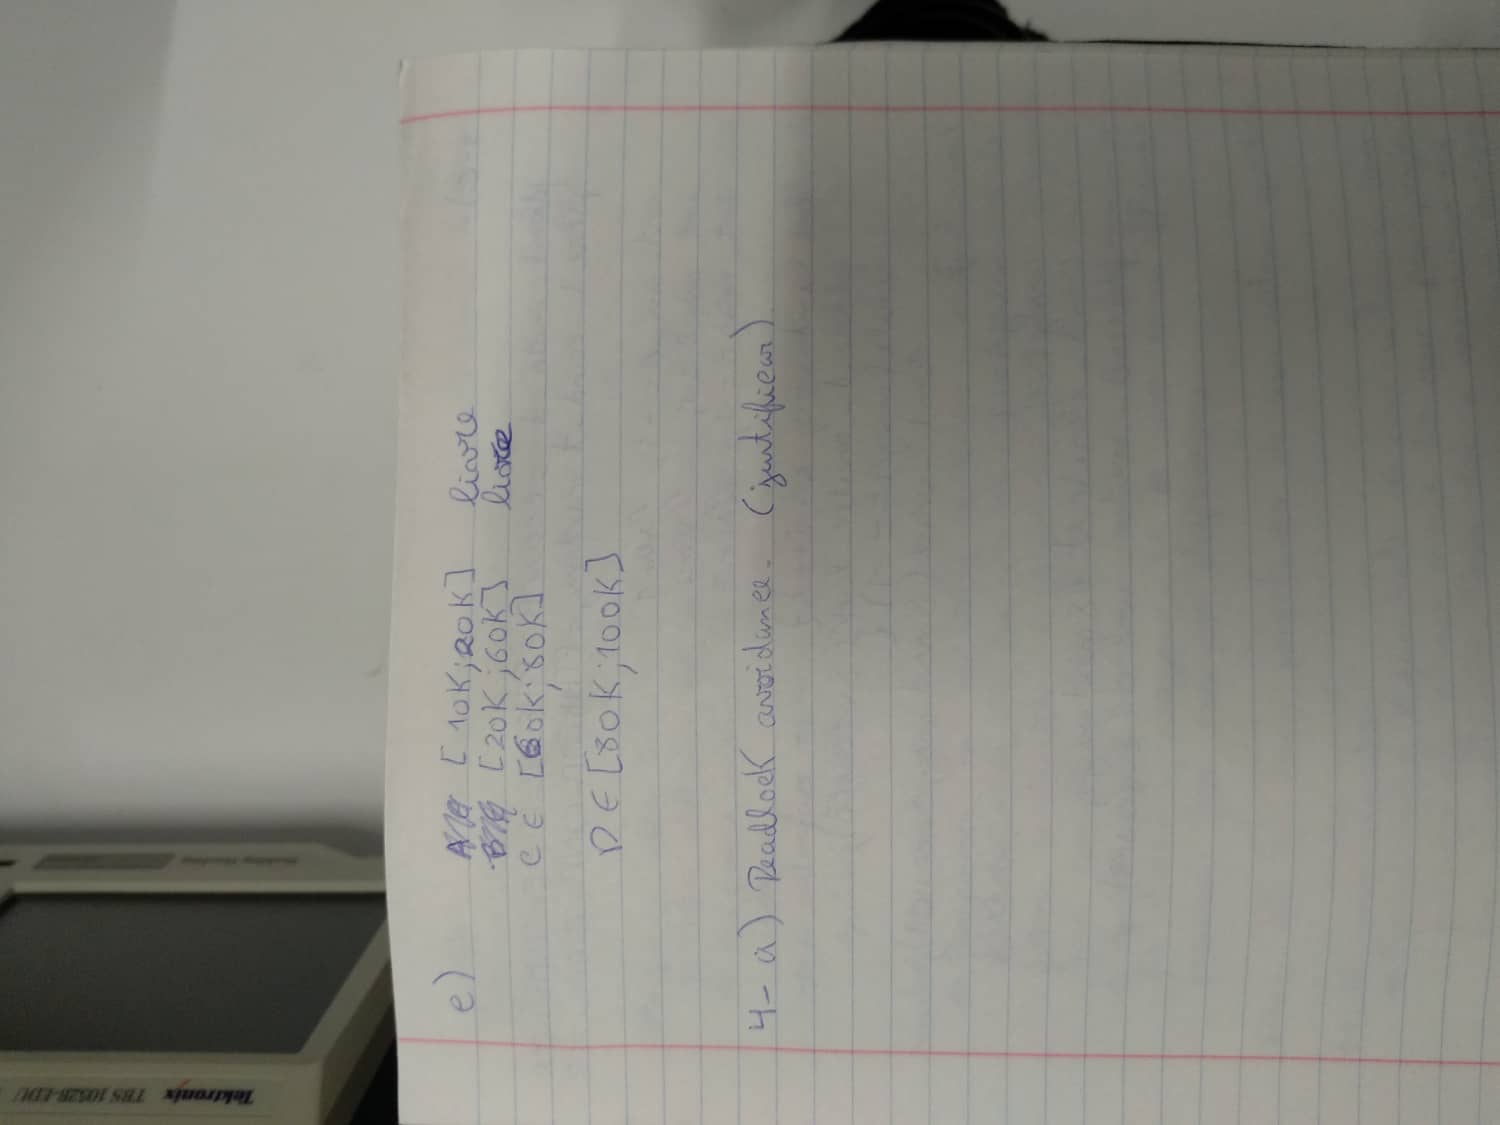 e) [10K;20K] livre
[20K;60K] livre
C ∈ [60K;80K]
D ∈ [80K;100K]
4- a) Deadlock avoidance. (justificar)
Tektronix TBS 1052B-EDU